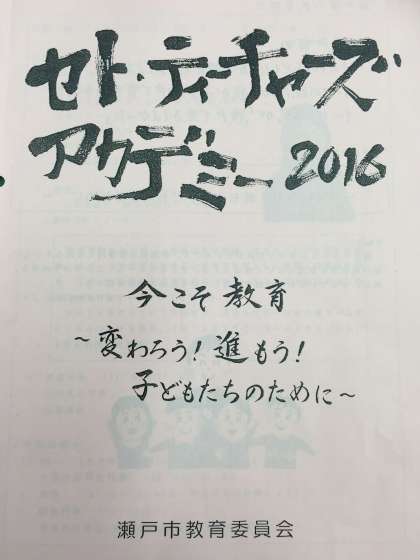 セト・ティーチャーズ
アカデミー 2016
今こそ教育
~変わろう!進もう!
子どもたちのために~
瀬戸市教育委員会